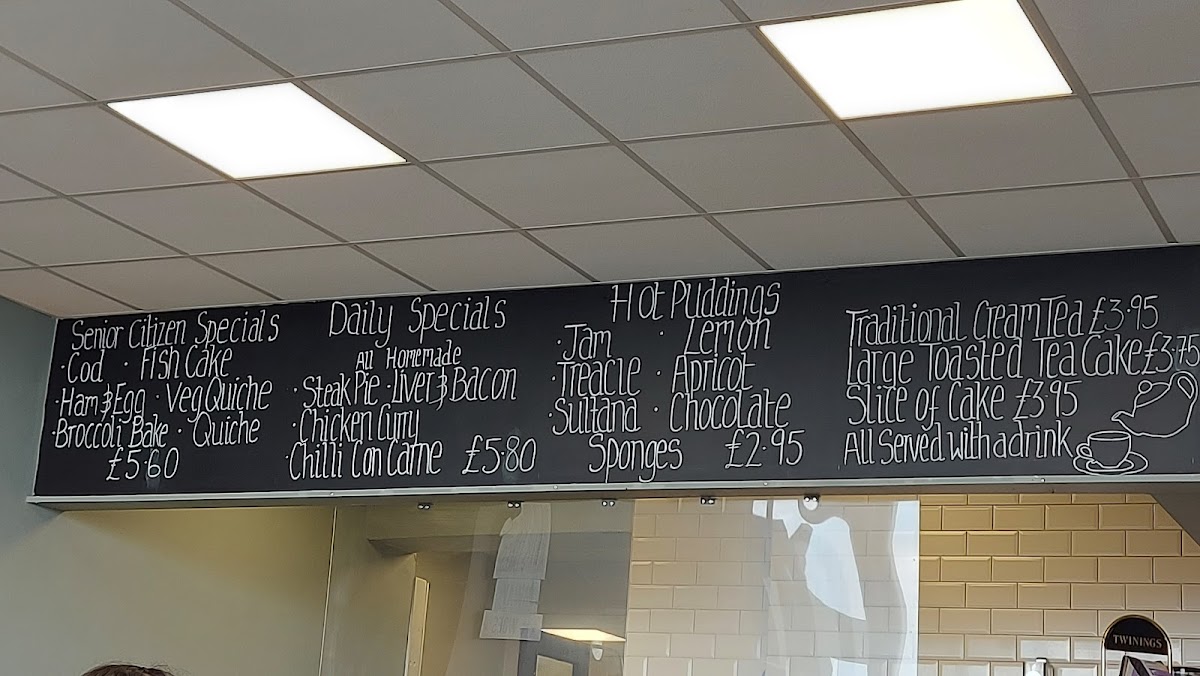 Senior Citizen Specials
· Cod · Fish Cake
· Ham & Egg · Veg Quiche
· Broccoli Bake · Quiche
£5·60
Daily Specials
All Homemade
· Steak Pie · Liver & Bacon
· Chicken Curry
· Chilli Con Carne £5·80
Hot Puddings
· Jam · Lemon
· Treacle · Apricot
· Sultana · Chocolate
Sponges £2·95
Traditional Cream Tea £3·95
Large Toasted Tea Cake £3·75
Slice of Cake £3·95
All Served with a drink
TWININGS